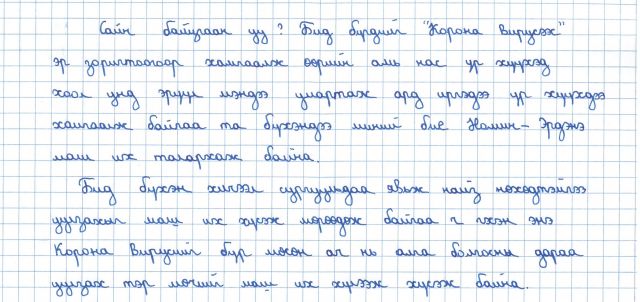 Сайн байцгаан уу? Бид бүрдийг "Корона Вирусээх"
эр зоригтоогоор хамгаалж өөрийн амь нас үр хүүхэд
хоол унд эрүүл мэндээ умартаж ард иргэдээ үр хүүхдээ
хамгаалж байгаа та бүхэндээ миний бие Номин-Эрдэнэ
маш их талархаж байна.
Бид бүхэн хичээл сургуульдаа явж найз нөхөдтэйгээ
уулзахыг маш их хүсэж мөрөөдөж байгаа ч гэхэн энэ
Корона Вирусийг бүр мөсөн алга болгосны дараа
уулзах тэр мөчийг маш их хүлээж хүсэж байна.